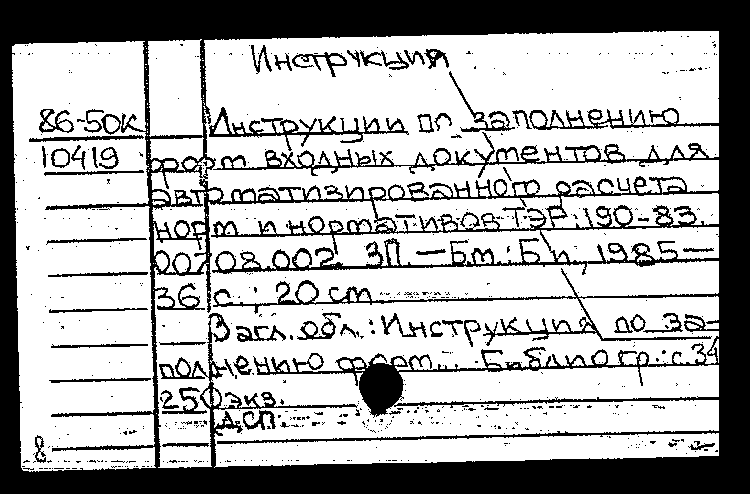 Инструкция
86-50к Инструкции по заполнению
10419 форм входных документов для
автоматизированного расчета
норм и нормативов ТЭР: 190-83.
00708.002. ЗП. — Б.м.: Б.и., 1985 —
36 с.; 20 см.
Загл. обл.: Инструкция по за-
полнению форм... Библиогр.: с. 34
250 экз.
ДСП.
8